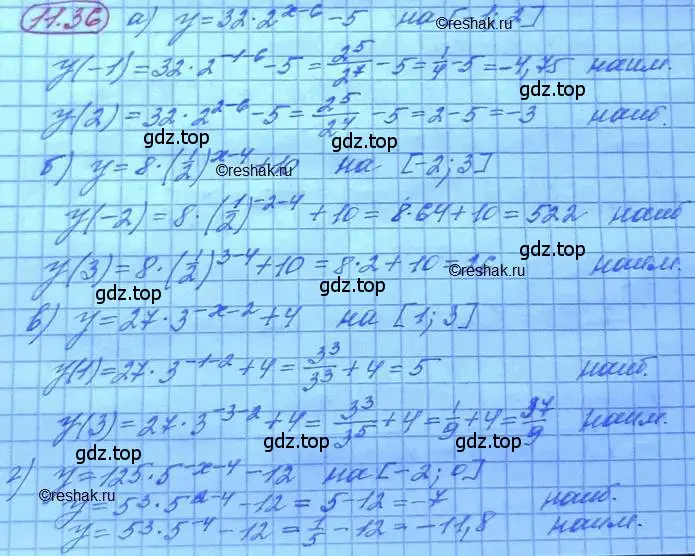 11.36 а) y = 32 · 2^(x-6) - 5 на [-1; 2]
y(-1) = 32 · 2^(-1-6) - 5 = 2^5/2^7 - 5 = 1/4 - 5 = -4,75 наим.
©reshak.ru
y(2) = 32 · 2^(2-6) - 5 = 2^5/2^4 - 5 = 2 - 5 = -3 наиб.
gdz.top gdz.top gdz.top
б) y = 8 · (1/2)^(x-4) + 10 на [-2; 3]
©reshak.ru
y(-2) = 8 · (1/2)^(-2-4) + 10 = 8·64 + 10 = 522 наиб
gdz.top
y(3) = 8 · (1/2)^(3-4) + 10 = 8·2 + 10 = 26 наим.
©reshak.ru
gdz.top gdz.top
в) y = 27 · 3^(-x-2) + 4 на [1; 3]
y(1) = 27 · 3^(-1-2) + 4 = 3^3/3^3 + 4 = 5 наиб.
©reshak.ru gdz.top
y(3) = 27 · 3^(-3-2) + 4 = 3^3/3^5 + 4 = 1/9 + 4 = 37/9 наим.
gdz.top gdz.top
г) y = 125 · 5^(-x-4) - 12 на [-2; 0]
©reshak.ru
y = 5^3 · 5^(2-4) - 12 = 5 - 12 = -7 наиб.
y = 5^3 · 5^(-4) - 12 = 1/5 - 12 = -11,8 наим.
gdz.top gdz.top